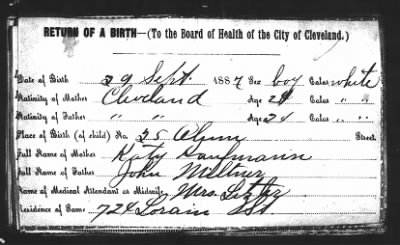 RETURN OF A BIRTH—(To the Board of Health of the City of Cleveland.)
Date of Birth 29 Sept 1887 Sex boy Color white
Nativity of Mother Cleveland Age 24 Color " "
Nativity of Father " " Age 24 Color " "
Place of Birth (of child) No. 25 Street
Full Name of Mother Katy Kaufmann
Full Name of Father John
Name of Medical Attendant or Midwife Mrs.
Residence of Same 724 Lorain St.